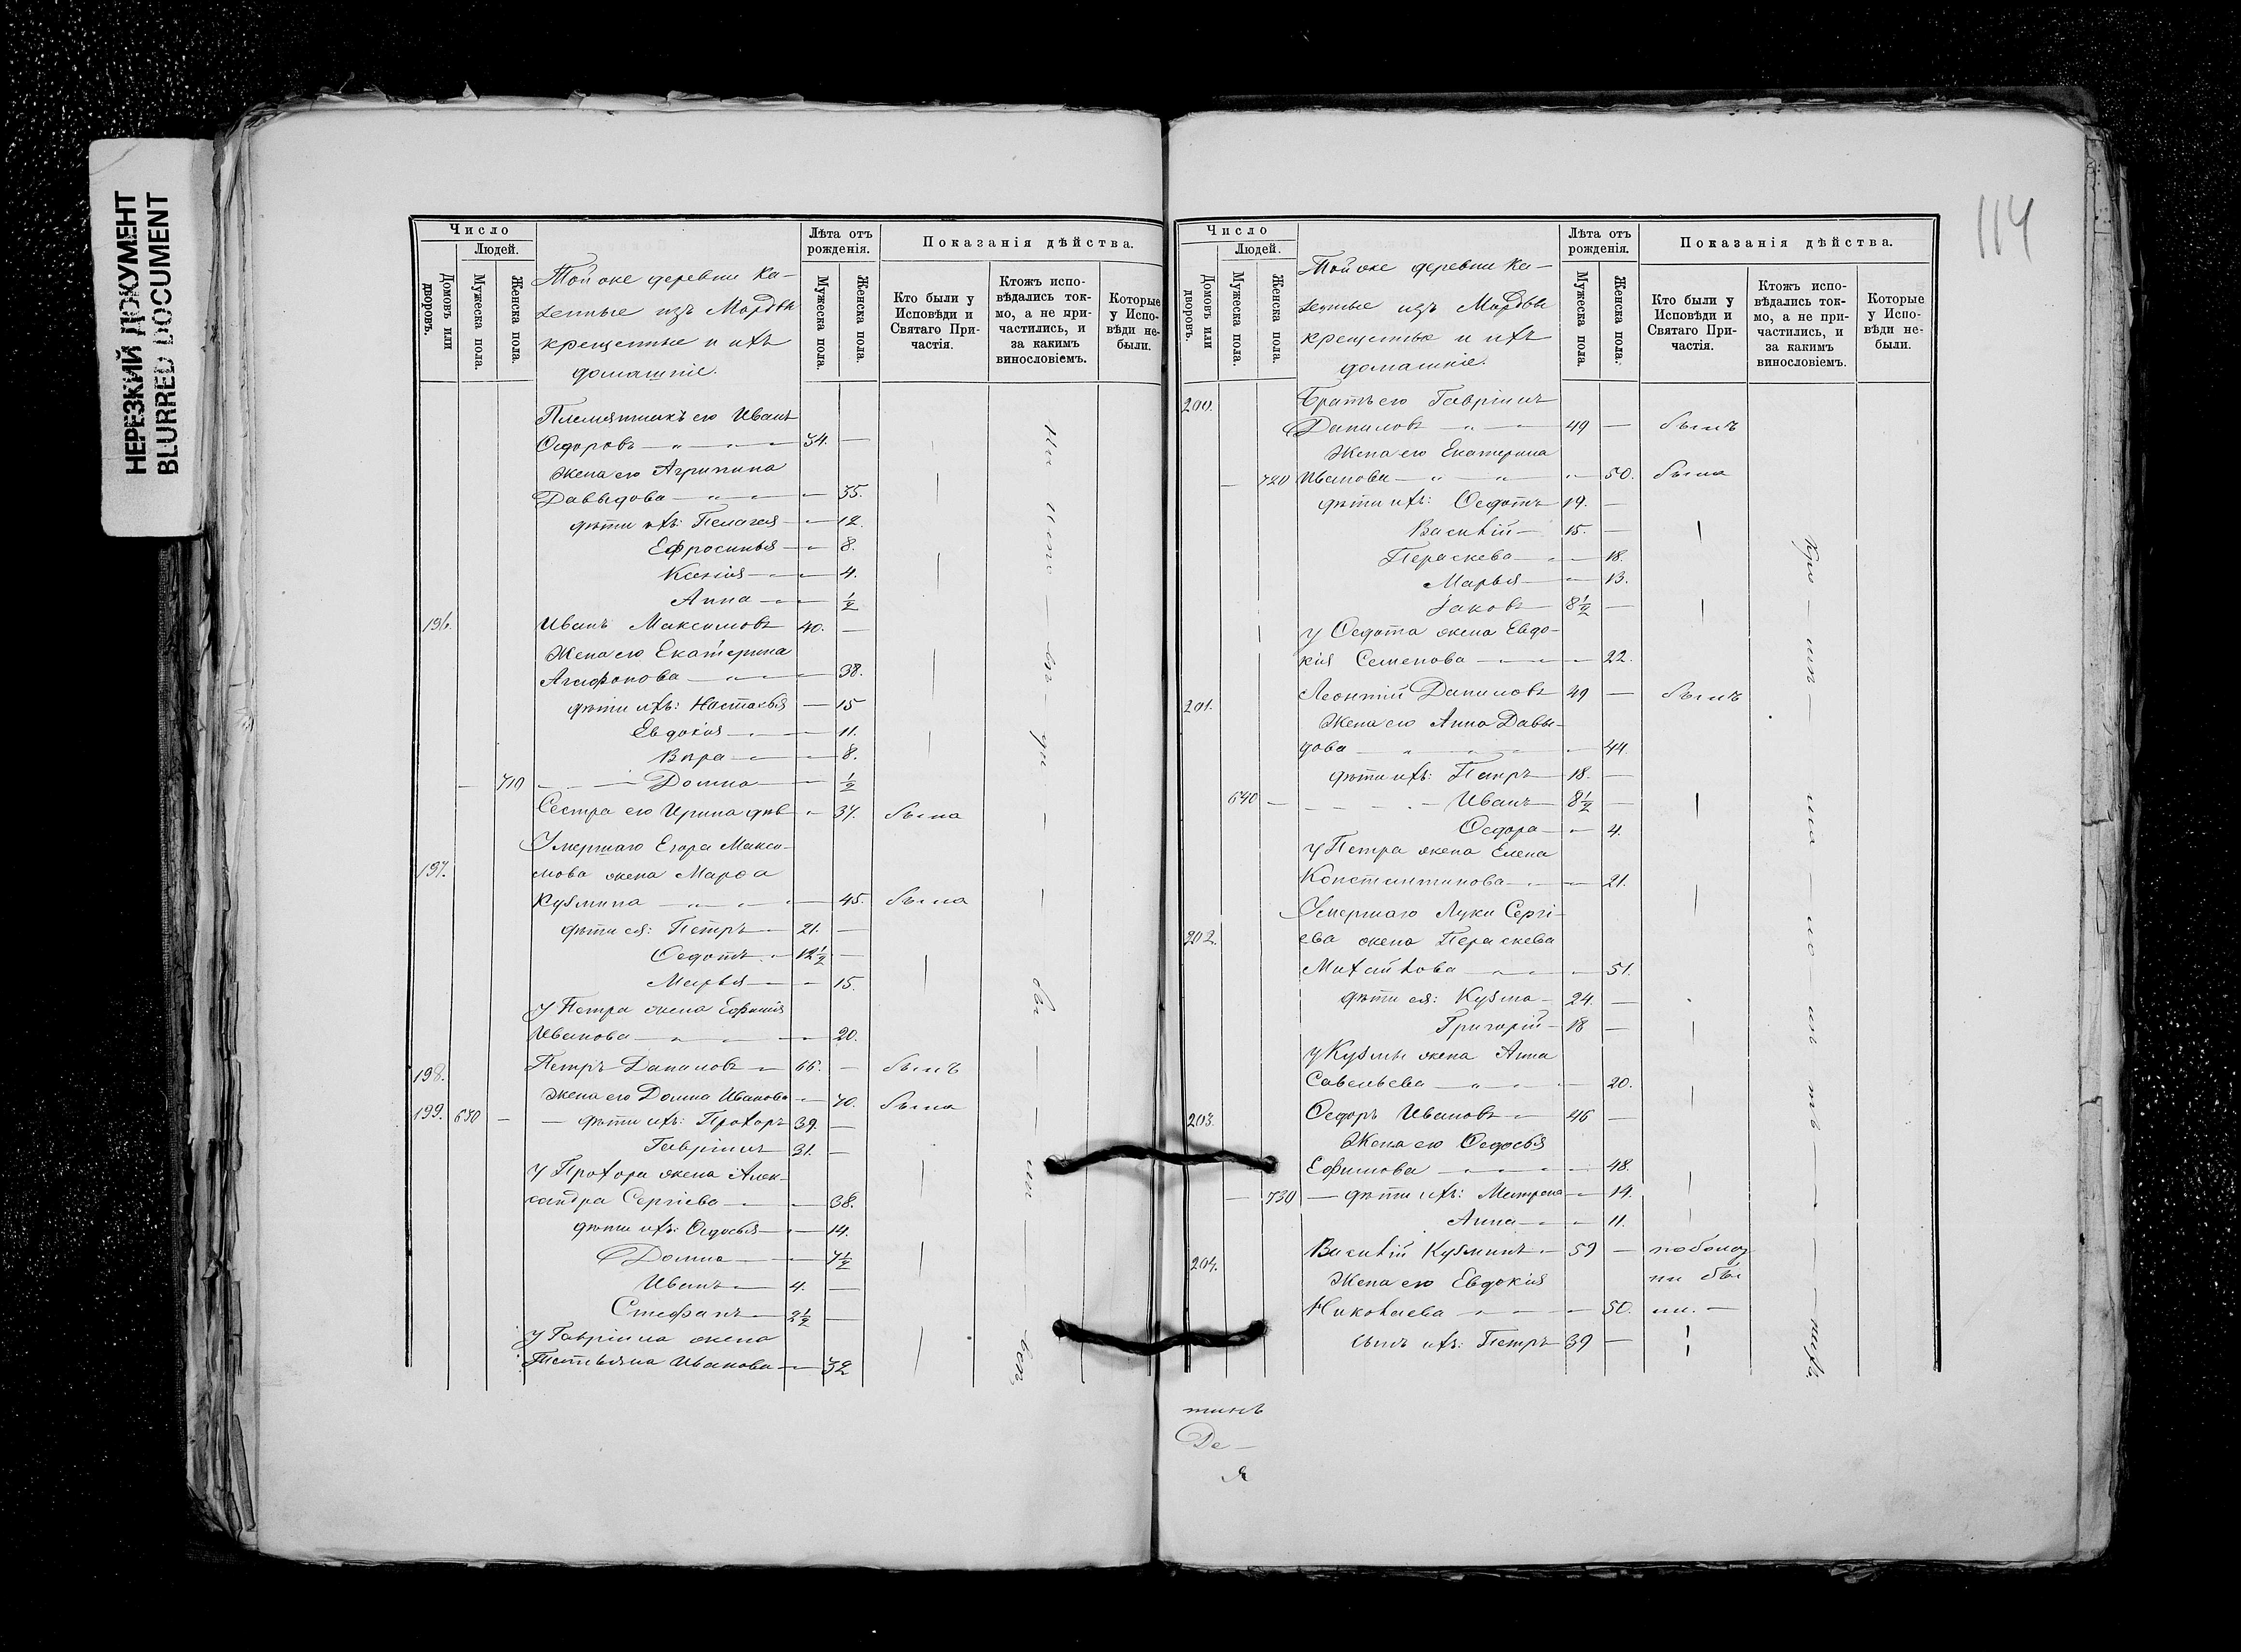 НЕРЕЗКИЙ ДОКУМЕНТ
BLURRED DOCUMENT
Число
Людей.
Домовъ или дворовъ.
Мужеска пола.
Женска пола.
Той же деревни Ка-
зенные изъ Мордвы
крещенные и ихъ
домашніе.
Лѣта отъ рожденія.
Мужеска пола.
Женска пола.
Показанія дѣйства.
Кто были у Исповѣди и Святаго При-частія.
Ктожъ испо-вѣдались ток-мо, а не при-частились, и за какимъ винословіемъ.
Которые у Испо-вѣди не-были.
Племянникъ его Иванъ
Ѳедоровъ — " — 34. —
Жена его Агрипина
Давыдова — " — 35.
дѣти ихъ: Пелагея — 12.
Ефросинья — 8.
Ксенія — 4.
Анна — ½
196. Иванъ Максимовъ 40. —
Жена его Екатерина
Агафонова — " — 38.
дѣти ихъ: Настасья — 15
Евдокія — 11.
Вѣра — 8.
— 710 — Домна — ½
Сестра его Ирина дѣв " 37. была
Умершаго Егора Макси-
197. мова жена Марѳа
Кузмина — " — 45. была
дѣти ея: Петръ — 21. —
Ѳедотъ — 12½ —
Марья — 15.
у Петра жена Ефимія
Иванова — " — 20.
198. Петръ Даниловъ — 66. — былъ
Жена его Домна Иванова — 70. была
199. 630 — дѣти ихъ: Прохоръ 39. —
Гавріилъ 31. —
у Прохора жена Алек-
сандра Сергіева — 38.
дѣти ихъ: Ѳедосья — 14.
Домна — 7½
Иванъ — 4. —
Стефанъ — 2½ —
у Гавріила жена
Татьяна Иванова — 32
114
Число
Людей.
Домовъ или дворовъ.
Мужеска пола.
Женска пола.
Той же деревни Ка-
зенные изъ Мордвы
крещенные и ихъ
домашніе.
Лѣта отъ рожденія.
Мужеска пола.
Женска пола.
Показанія дѣйства.
Кто были у Исповѣди и Святаго При-частія.
Ктожъ испо-вѣдались ток-мо, а не при-частились, и за какимъ винословіемъ.
Которые у Испо-вѣди не-были.
200. Братъ его Гавріилъ
Даниловъ — " — 49 — былъ
Жена его Екатерина
— 720 Иванова — " — 50. была
дѣти ихъ: Ѳедотъ 19. —
Василій — 15. —
Параскева — 18.
Марья — 13.
Іаковъ 8½ —
у Ѳедота жена Евдо-
кія Семенова — 22.
201. Леонтій Даниловъ 49 — былъ
Жена его Анна Давы-
дова — " — 44.
дѣти ихъ: Петръ — 18. —
640 — Иванъ — 8½ —
Ѳедора — 4.
у Петра жена Елена
Константинова — 21.
Умершаго Луки Сергі-
202. ева жена Параскева
Михайлова — 51.
дѣти ея: Кузма — 24. —
Григорій — 18 —
у Кузмы жена Анна
Савельева — " — 20.
203. Ѳедоръ Ивановъ — 46 —
Жена его Ѳедосья
Ефимова — " — 48.
— 730 — дѣти ихъ: Матрена — 14.
Анна — 11.
204. Василій Кузминъ — 59 —
Жена его Евдокія
Николаева — " — 50.
сынъ ихъ: Петръ 39 —
Де —